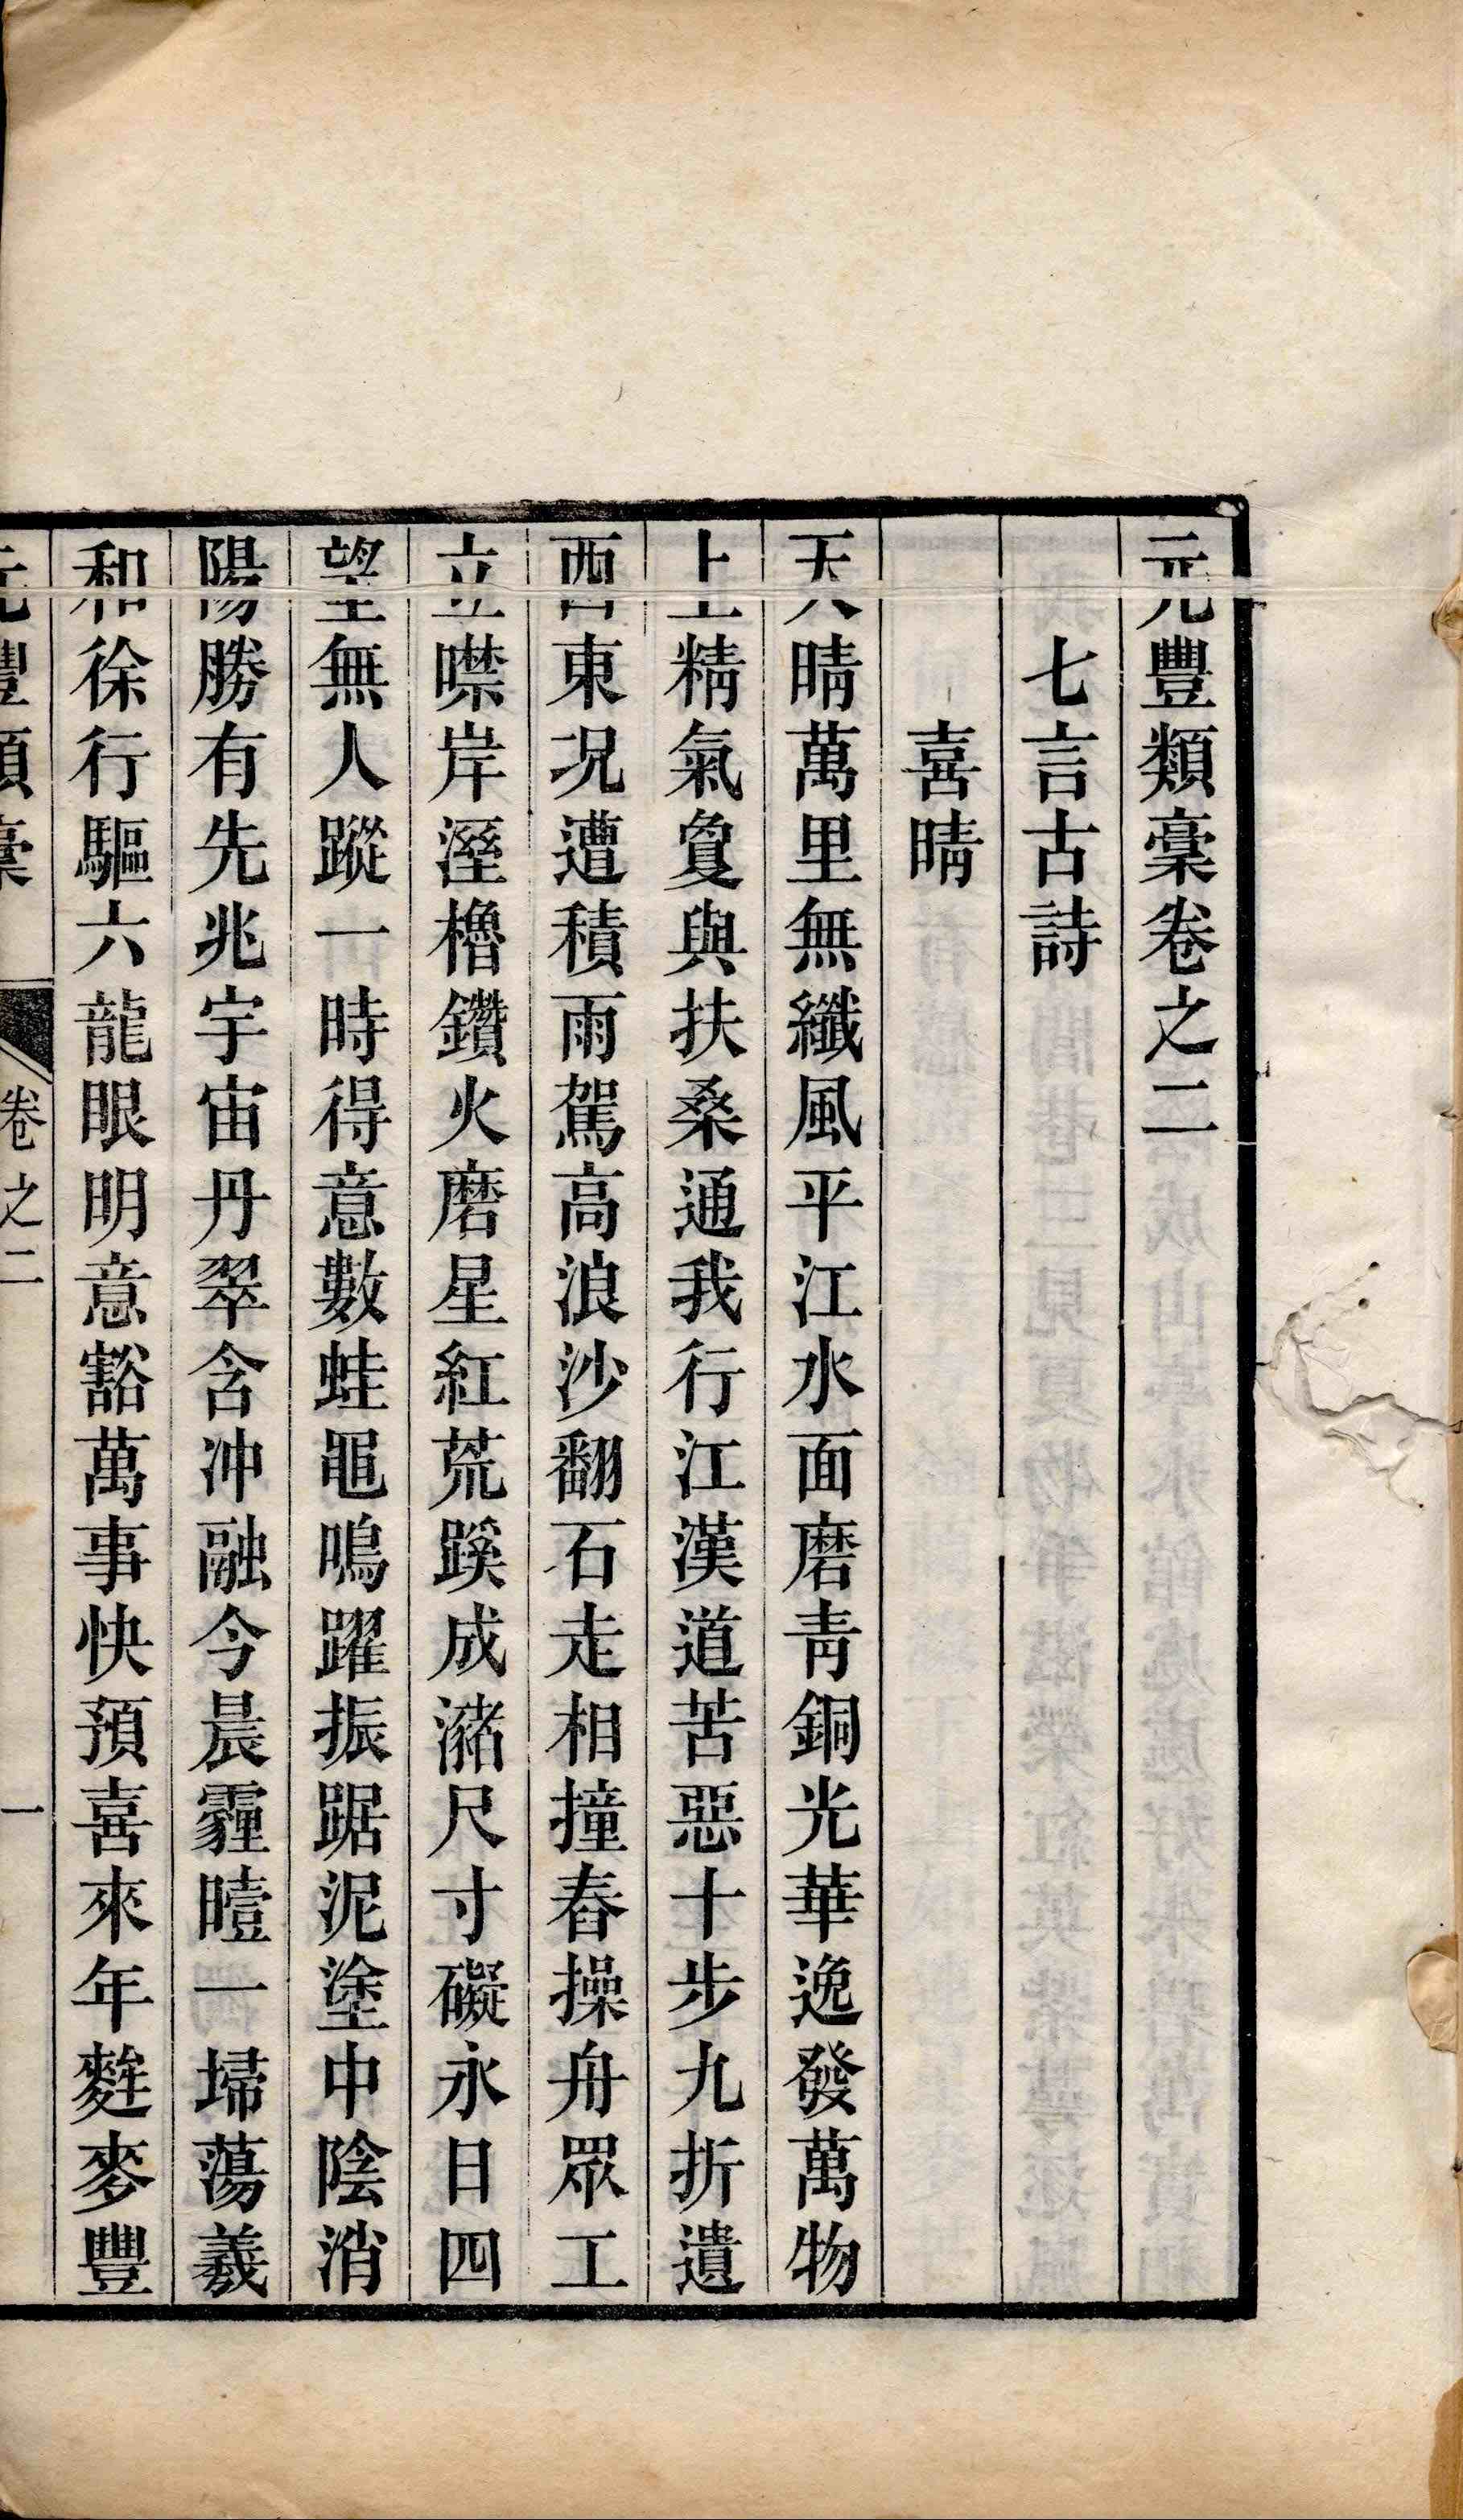 元豐類稾卷之二
七言古詩
喜晴
天晴萬里無纖風平江水面磨青銅光華逸發萬物
上精氣負與扶桑通我行江漢道苦惡十步九折遺
西東况遭積雨駕高浪沙翻石走相撞舂操舟眾工
立噤岸溼櫓鑽火磨星紅荒蹊成瀦尺寸礙永日四
望無人蹤一時得意數蛙黽鳴躍振踞泥塗中陰消
陽勝有先兆宇宙丹翠含沖融今晨霾曀一埽蕩羲
和徐行驅六龍眼明意豁萬事快預喜來年麰麥豐
元豐類稾 卷之二 一